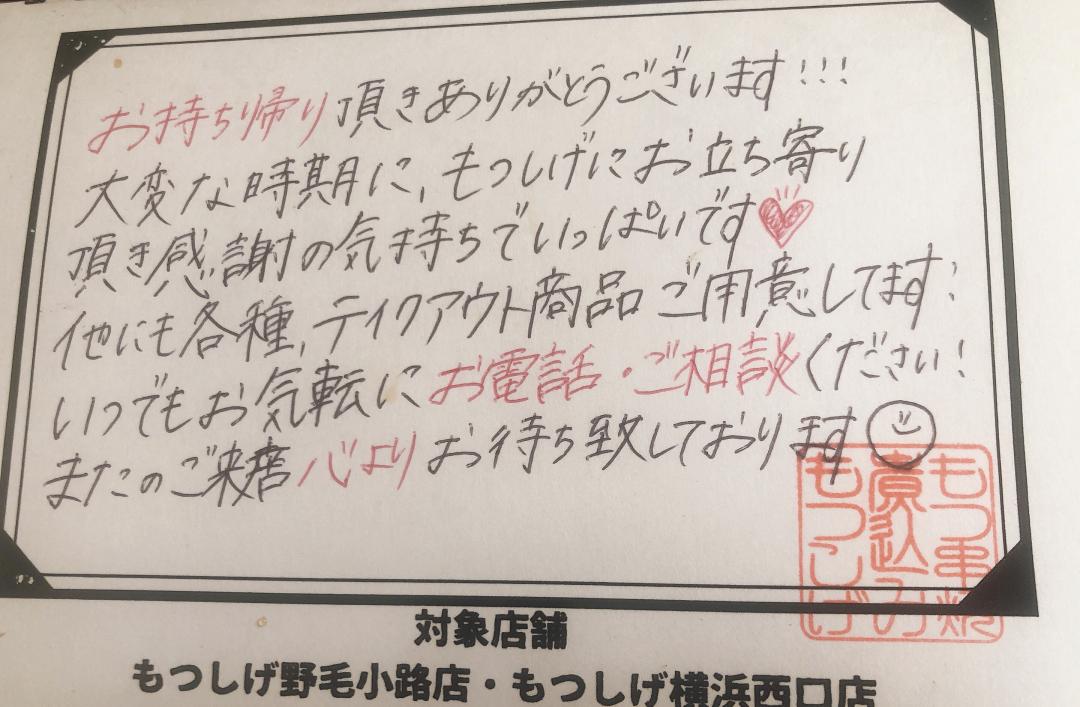 お持ち帰り頂きありがとうございます!!!
大変な時期に、もつしげにお立ち寄り
頂き感謝の気持ちでいっぱいです
他にも各種、テイクアウト商品ご用意してます!
いつでもお気軽にお電話・ご相談ください!
またのご来店心よりお待ち致しております
もつ串焼
煮込み
もつしげ
対象店舗
もつしげ野毛小路店・もつしげ横浜西口店